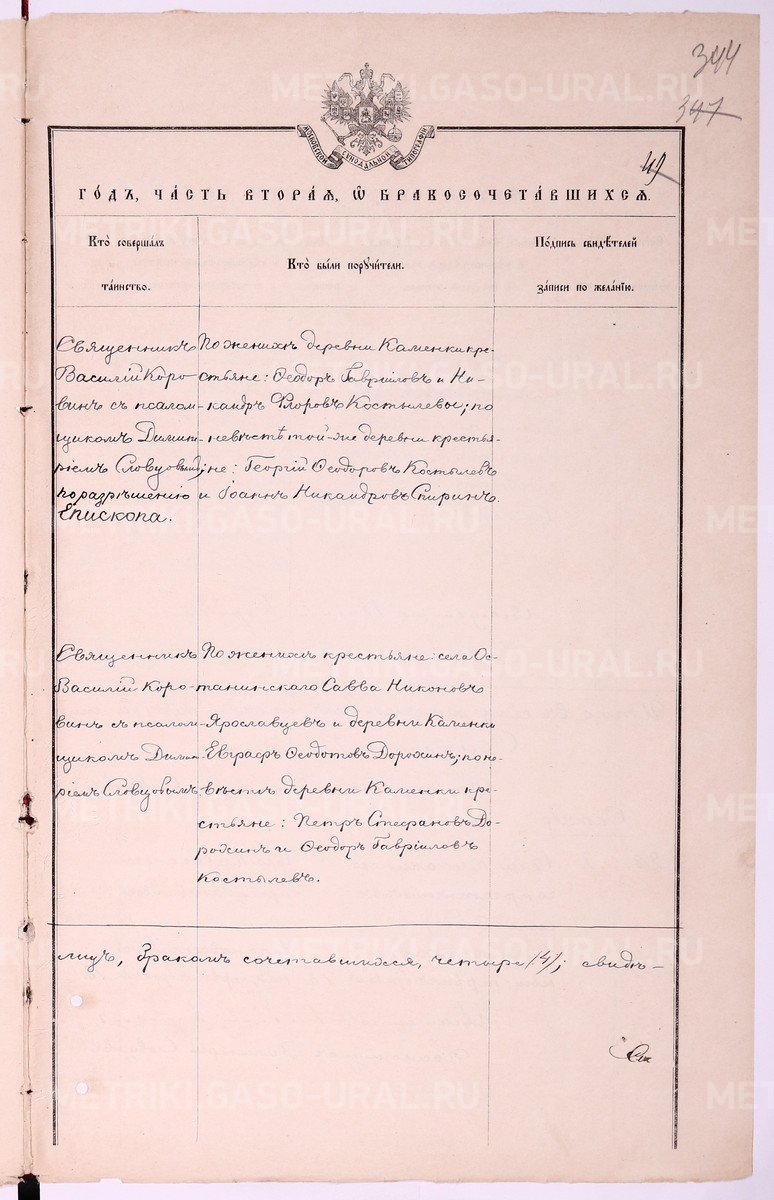 344
347
49
МОСКОВСКОЙ СУНОДАЛЬНОЙ ТИПОГРАФІИ
ГО́ДЪ, ЧА́СТЬ ВТОРА́Я, Ѽ БРАКОСОЧЕТА́ВШИХСЯ.
Кто̀ соверша́лъ
та́инство.
Кто̀ бы́ли поручи́тели.
По́дпись свидѣ́телей
за́писи по жела́нїю.
Священникъ
Василій Коро-
винъ съ псалом-
щикомъ Димит-
ріемъ Словцовымъ;
по разрѣшенію
Епископа.
По женихѣ деревни Каменки кре-
стьяне: Ѳеодоръ Гавріиловъ и Ни-
кандръ Флоровъ Костылевы; по
невѣстѣ той-же деревни крестья-
не: Георгій Ѳеодоровъ Костылевъ
и Іоаннъ Никандровъ Спиринъ.
Священникъ
Василій Коро-
винъ съ псалом-
щикомъ Димит-
ріемъ Словцовымъ
По женихѣ крестьяне: села Ос-
танинскаго Савва Никоновъ
Ярославцевъ и деревни Каменки
Евграфъ Ѳеодотовъ Дорохинъ; по не-
вѣстѣ деревни Каменки кре-
стьяне: Петръ Стефановъ До-
рохинъ и Ѳеодоръ Гавріиловъ
Костылевъ.
лицъ, бракомъ сочетавшихся, четыре /4/; свидѣ-
Св
METRIKI.GASO-URAL.RU